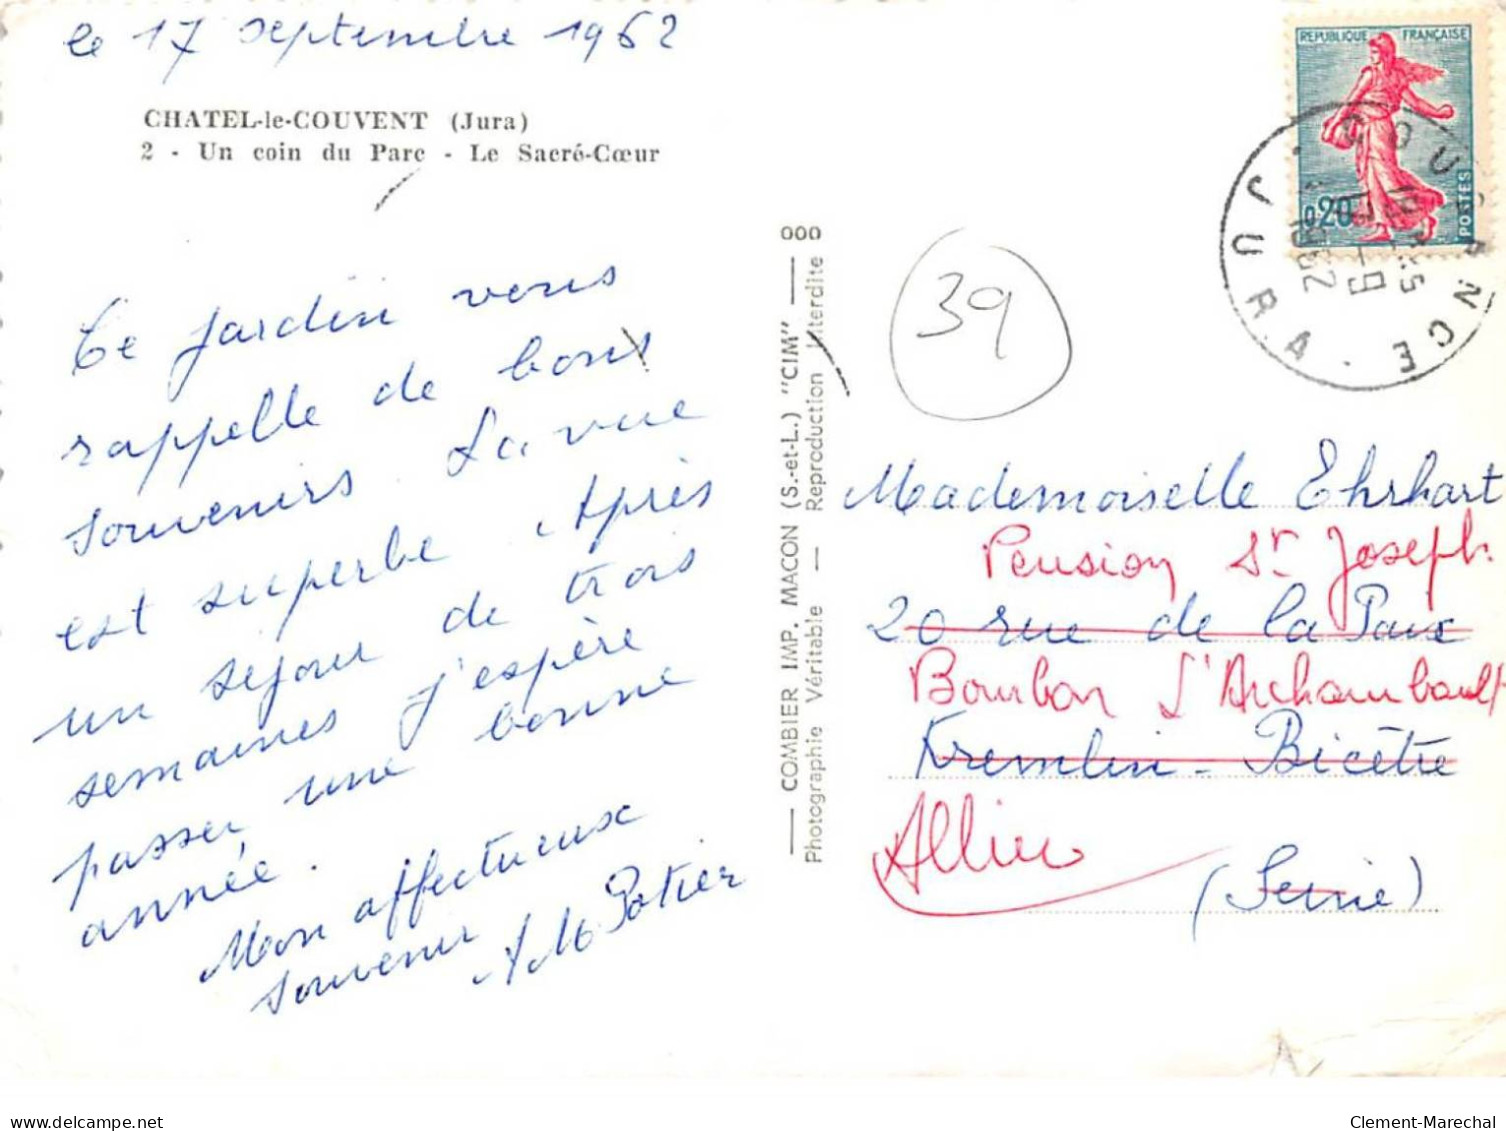 le 17 septembre 1962
CHATEL-le-COUVENT (Jura)
2 - Un coin du Parc - Le Sacré-Cœur
Ce jardin vous
rappelle de bons
souvenirs. La vue
est superbe. Après
un séjour de trois
semaines j'espère
passer une bonne
année.
Mon affectueux
souvenir
AM Potier
000
COMBIER IMP. MACON (S.-et-L.) "CIM"
Photographie Véritable — Reproduction Interdite
39
REPUBLIQUE FRANÇAISE
0,20
POSTES
COUSANCE
JURA
1962
Mademoiselle Ehrhart
Pension St Joseph
20 rue de la Paix
Bourbon L'Archambault
Kremlin-Bicêtre
Allier
(Seine)
www.delcampe.net
Clement-Marechal